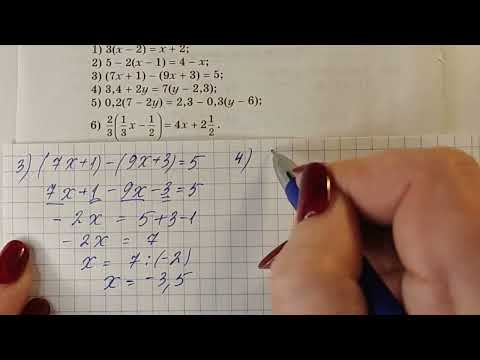 1) 3(x − 2) = x + 2;
2) 5 − 2(x − 1) = 4 − x;
3) (7x + 1) − (9x + 3) = 5;
4) 3,4 + 2y = 7(y − 2,3);
5) 0,2(7 − 2y) = 2,3 − 0,3(y − 6);
6) 2/3(1/3x − 1/2) = 4x + 2 1/2.
3) (7x+1)−(9x+3)=5
7x+1−9x−3=5
−2x = 5+3−1
−2x = 7
x = 7:(−2)
x = −3,5
4)